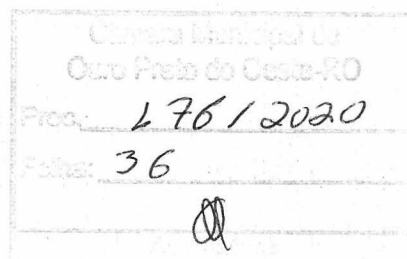 Câmara Municipal de
Ouro Preto do Oeste-RO
Proc.: 176/2020
Folha: 36